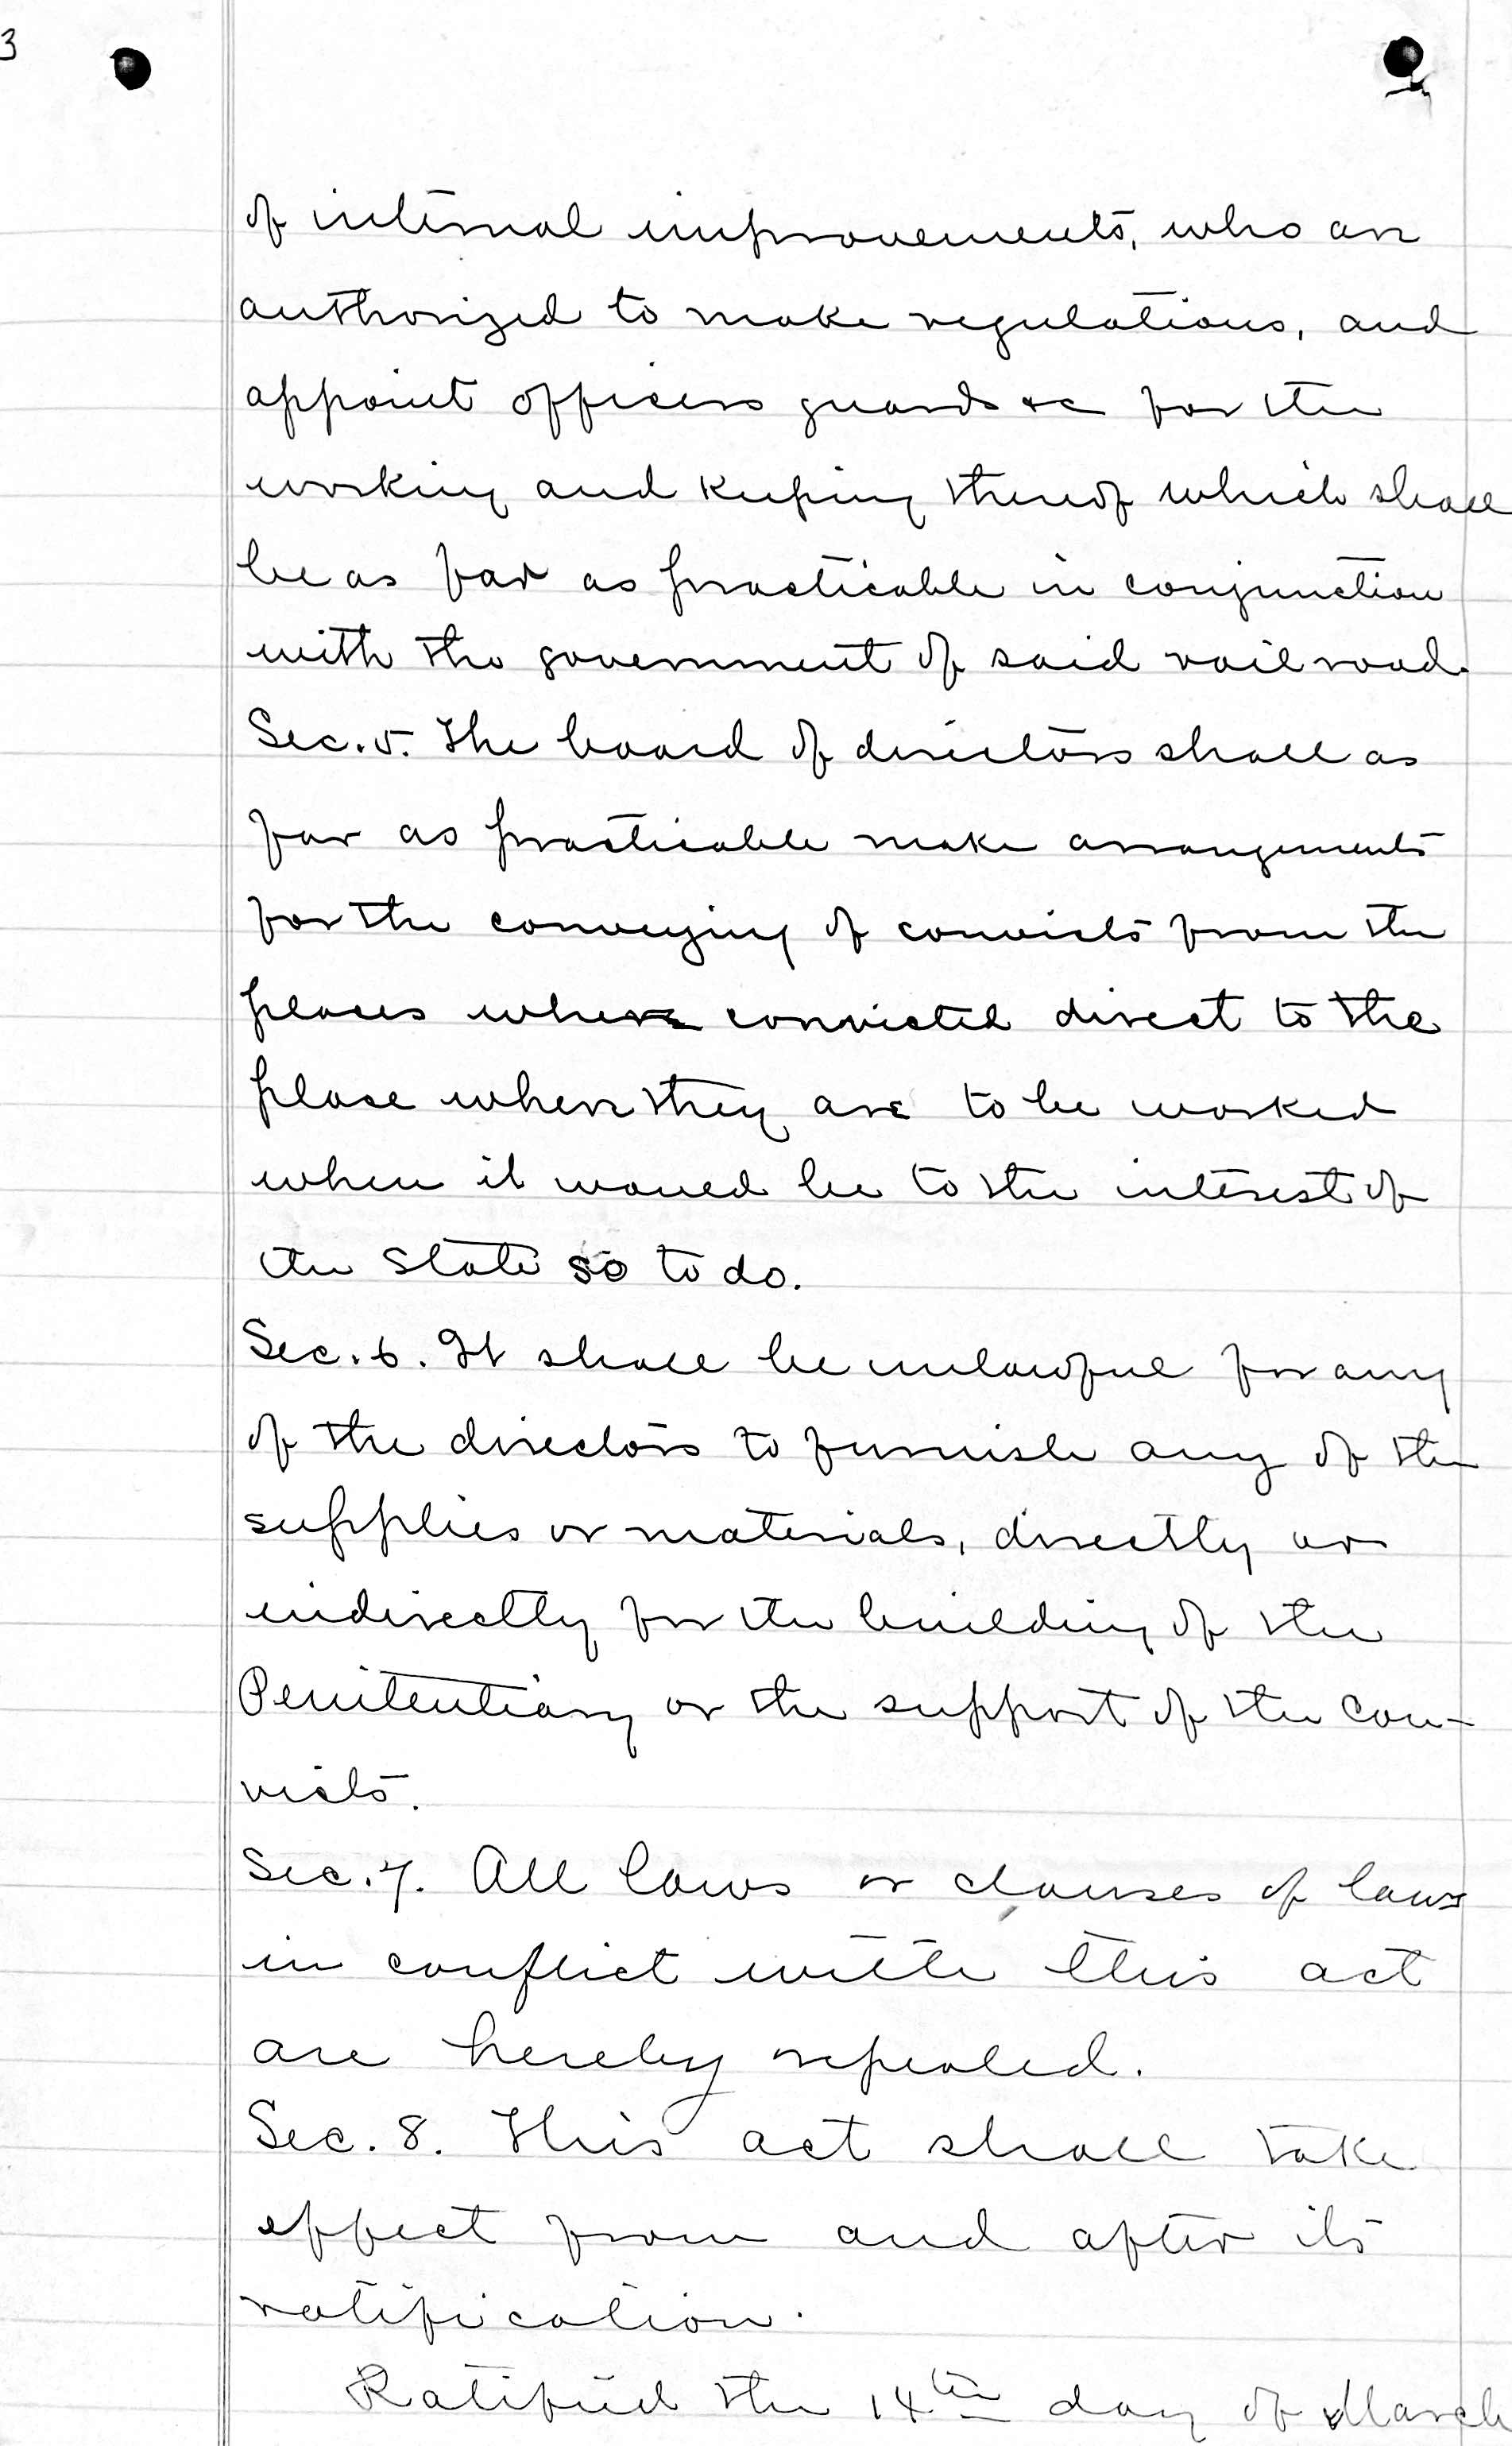 3
of internal improvements, who are
authorized to make regulations, and
appoint officers guards &c for the
working and keeping thereof which shall
be as far as practicable in conjunction
with the government of said rail road.
Sec. 5. The board of directors shall as
far as practicable make arrangements
for the conveying of convicts from the
places where convicted direct to the
place where they are to be worked
when it would be to the interest of
the State so to do.
Sec. 6. It shall be unlawful for any
of the directors to furnish any of the
supplies or materials, directly or
indirectly for the building of the
Penitentiary or the support of the con-
victs.
Sec. 7. All laws or clauses of laws
in conflict with this act
are hereby repealed.
Sec. 8. This act shall take
effect from and after its
ratification.
Ratified the 14th day of March